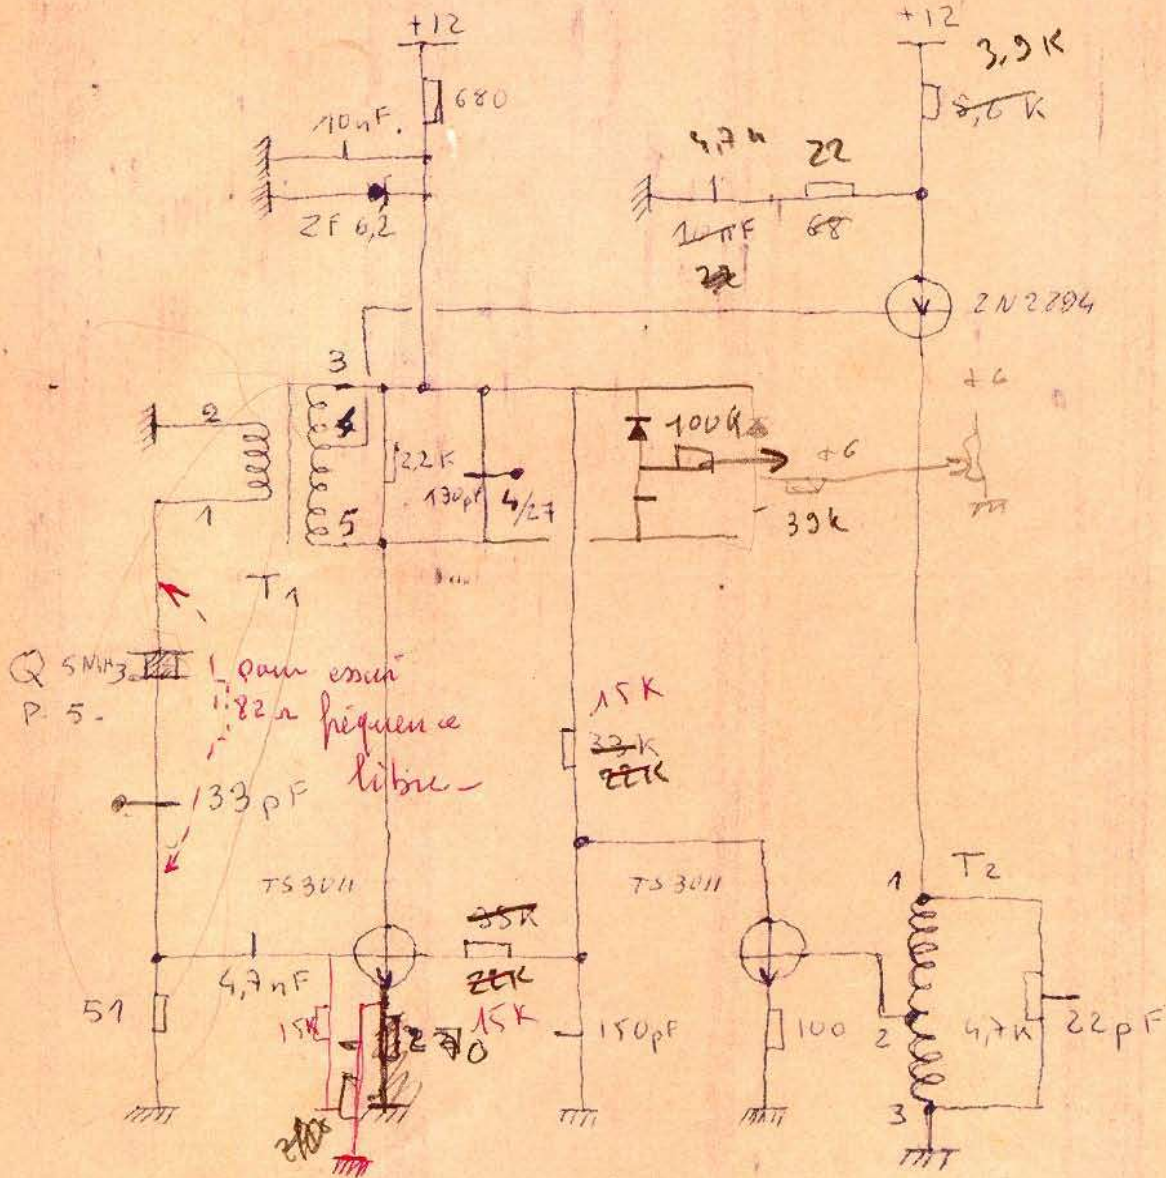 +12
+12
3,9 K
680
10nF.
4,7 n
22
ZF 6,2
10nF
68
22
2N2894
3
+6
2
4
100K
+6
2,2K
130pF
4/27
1
5
39k
T1
Q 5MHz
P. 5.
pour essai
82 Ω fréquence
libre
15K
33K
22K
33pF
TS3011
TS3011
1
T2
33K
22K
4,7nF
51
15K
15K
150pF
100
2
4,7K
22pF
3